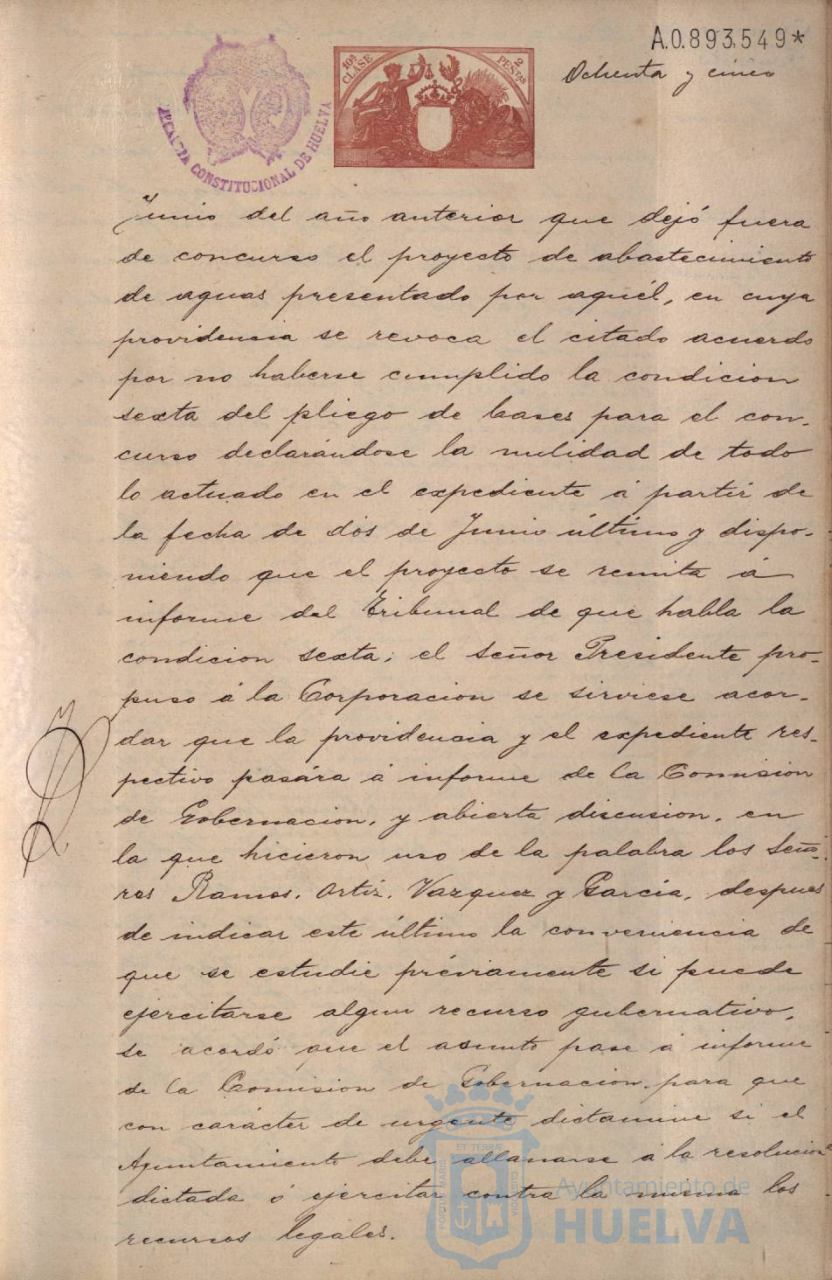 A.0.893,549*
Ochenta y cinco
10ª CLASE
2 PESTAS
ALCALDIA CONSTITUCIONAL DE HUELVA
Junio del año anterior que dejó fuera
de concurso el proyecto de abastecimiento
de aguas presentado por aquél, en cuya
providencia se revoca el citado acuerdo
por no haberse cumplido la condicion
sexta del pliego de bases para el con-
curso declarándose la nulidad de todo
lo actuado en el expediente á partir de
la fecha de dos de Junio último y dispo-
niendo que el proyecto se remita á
informe del Tribunal de que habla la
condicion sexta; el señor Presidente pro-
puso á la Corporacion se sirviese acor-
dar que la providencia y el expediente res-
pectivo pasára á informe de la Comision
de Gobernacion, y abierta discusion, en
la que hicieron uso de la palabra los Seño-
res Ramos, Ortiz, Vazquez y Garcia, despues
de indicar este último la conveniencia de
que se estudie préviamente si puede
ejercitarse algun recurso gubernativo,
se acordó que el asunto pase á informe
de la Comision de Gobernacion para que
con carácter de urgente dictamine si el
Ayuntamiento debe allanarse á la resolucion
dictada ó ejercitar contra la misma los
recursos legales.
Ayuntamiento de
HUELVA